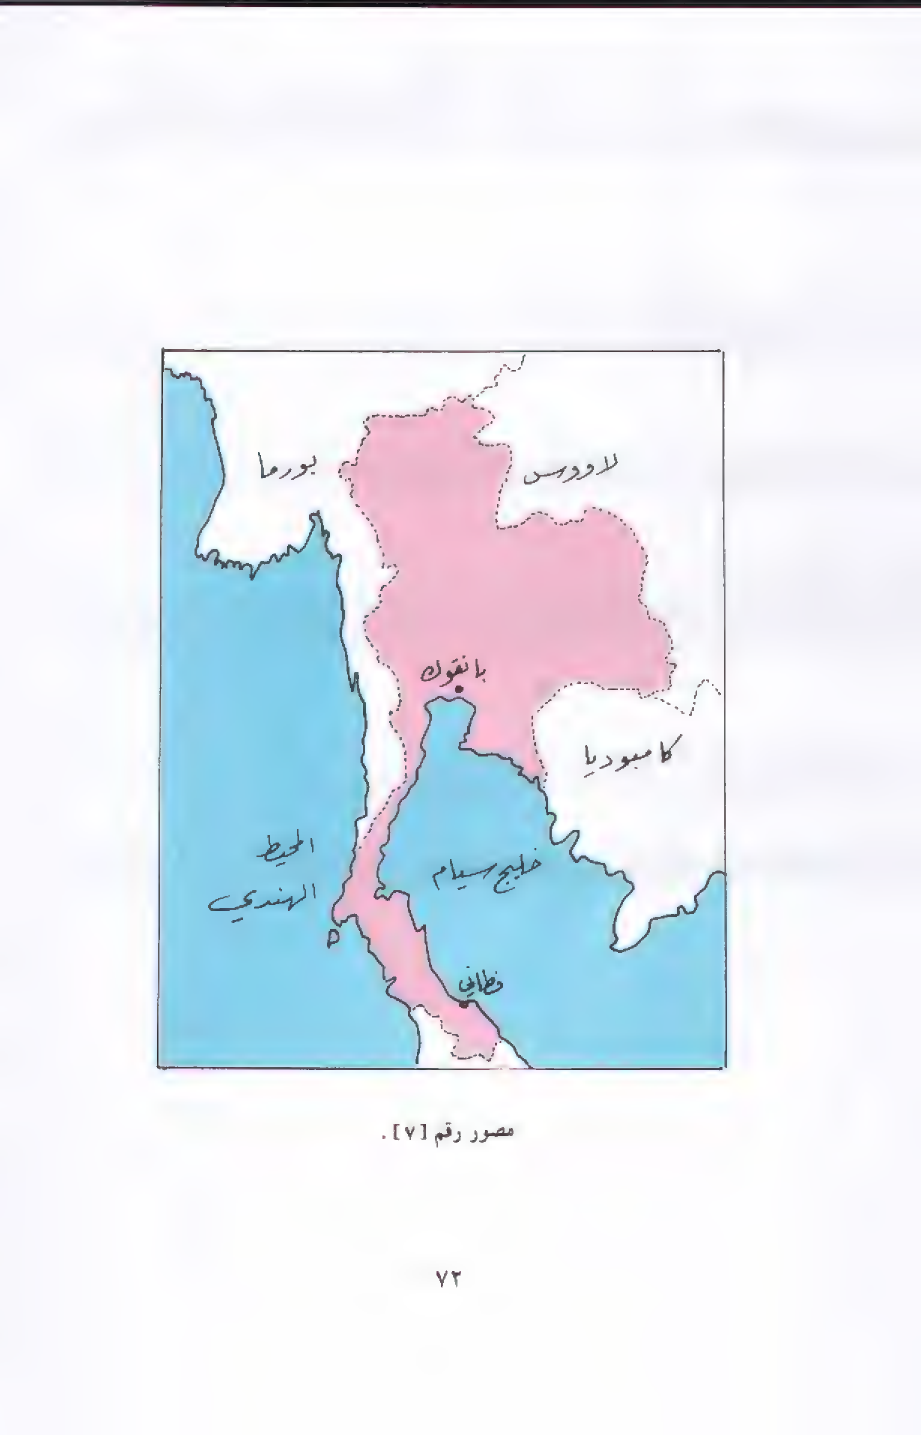 لاووس
بورما
بانقوك
كامبوديا
المحيط
الهندي
خليج سيام
فطاني
مصور رقم [٧] .
٧٢